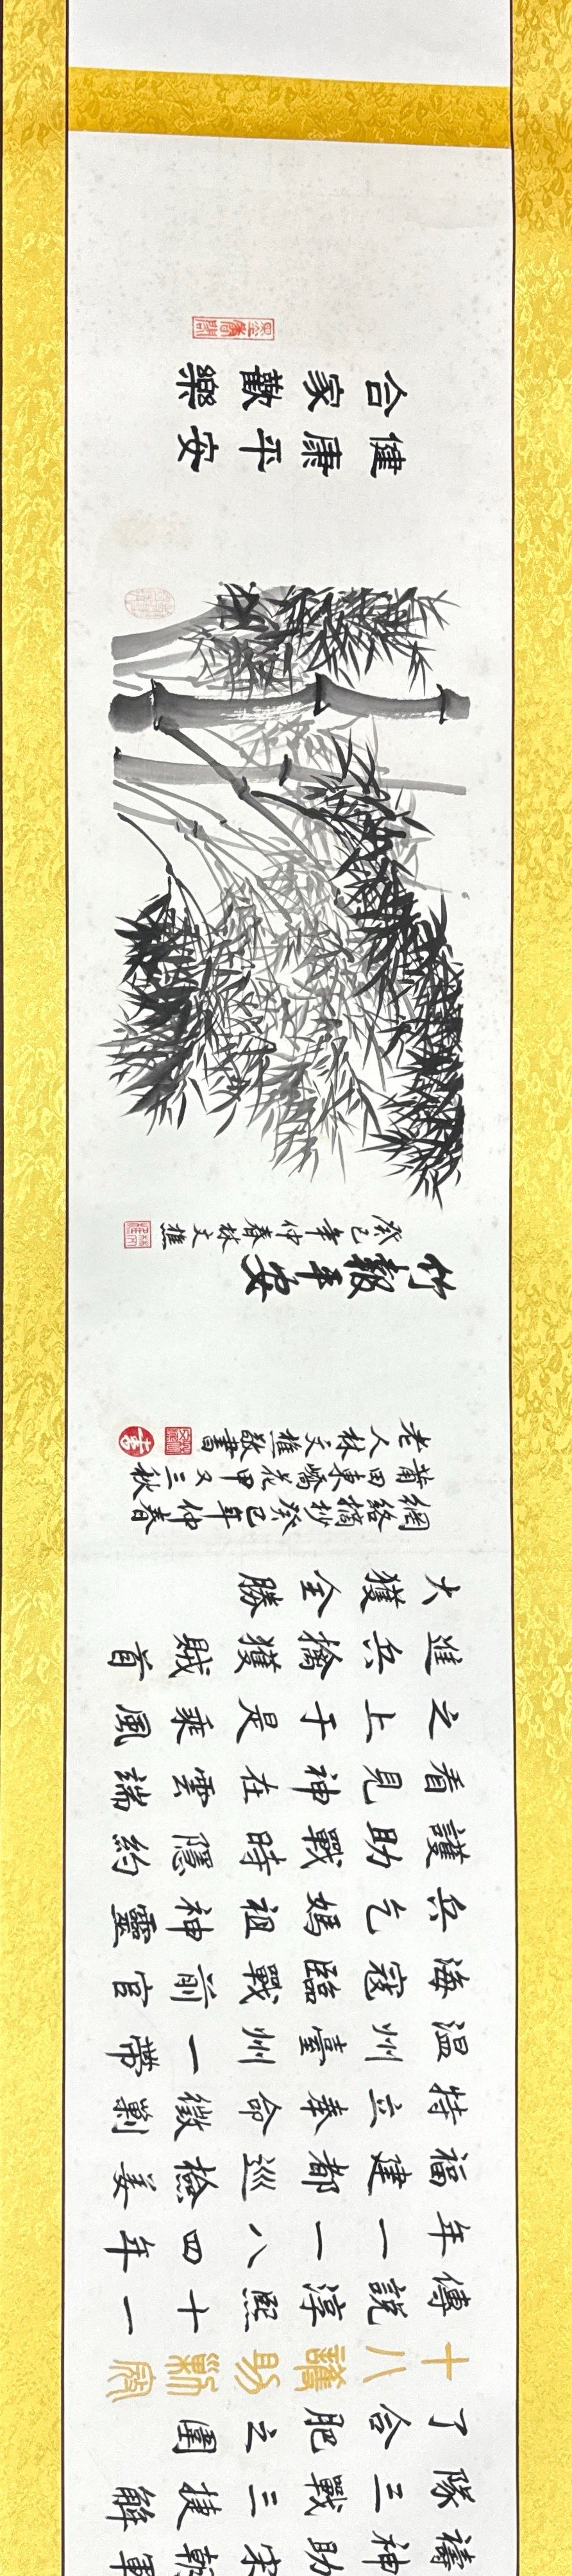 禱神助宋朝軍
隊三戰三捷解
了合肥之圍
十八護助剿寇
傳說淳熙十一
年一一八四年
福建都巡檢姜
特立奉命徵剿
溫州臺州一帶
海寇臨戰前官
兵乞媽祖神靈
護助戰時隱約
看見神在雲端
之上于是乘風
進兵擒獲賊首
大獲全勝
網絡摘抄癸巳年仲春
莆田東嶠花甲又三秋
老人林文樵敬書
竹報平安
癸巳年仲春林文樵
健康平安
合家歡樂